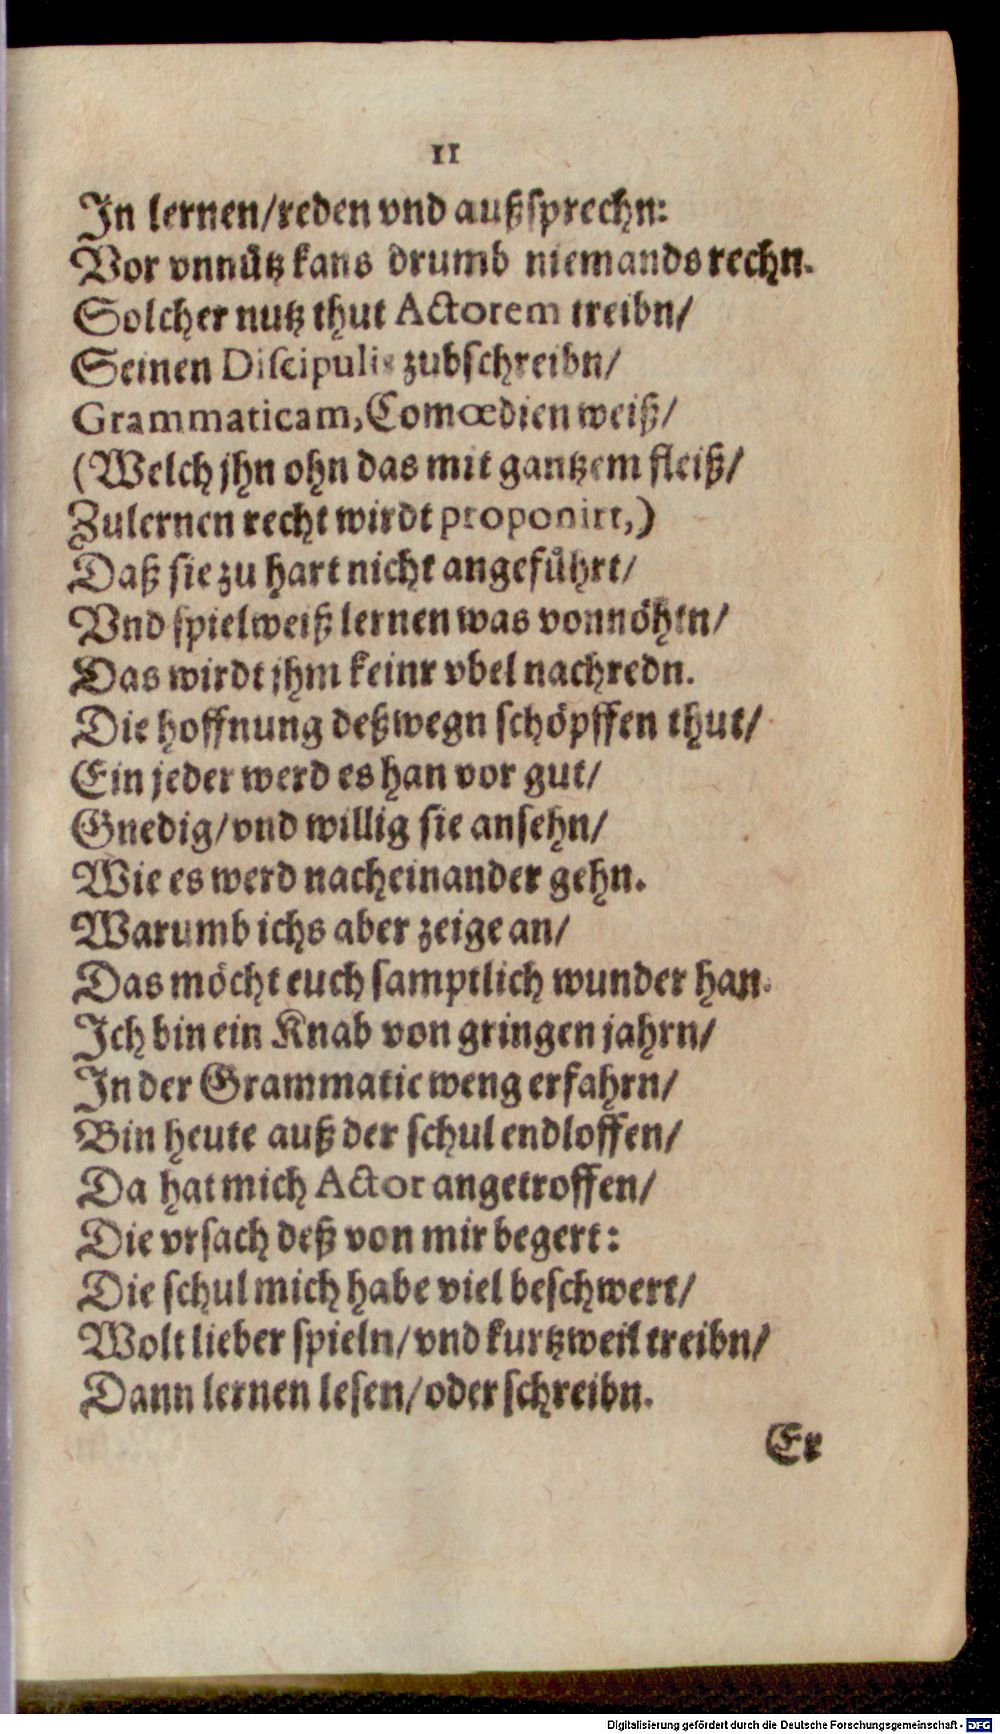 11
In lernen/reden vnd außsprechn:
Vor vnnütz kans drumb niemands rechn.
Solcher nutz thut Actorem treibn/
Seinen Discipulis zubschreibn/
Grammaticam, Comœdien weiß/
(Welch jhn ohn das mit gantzem fleiß/
Zulernen recht wirdt proponirt,)
Daß sie zu hart nicht angeführt/
Vnd spielweiß lernen was vonnöhtn/
Das wirdt jhm keinr vbel nachredn.
Die hoffnung deßwegn schöpffen thut/
Ein jeder werd es han vor gut/
Gnedig/vnd willig sie ansehn/
Wie es werd nacheinander gehn.
Warumb ichs aber zeige an/
Das möcht euch samptlich wunder han.
Ich bin ein Knab von gringen jahrn/
In der Grammatic weng erfahrn/
Bin heute auß der schul endloffen/
Da hat mich Actor angetroffen/
Die vrsach deß von mir begert:
Die schul mich habe viel beschwert/
Wolt lieber spieln/vnd kurtzweil treibn/
Dann lernen lesen/oder schreibn.
Er
Digitalisierung gefördert durch die Deutsche Forschungsgemeinschaft - DFG